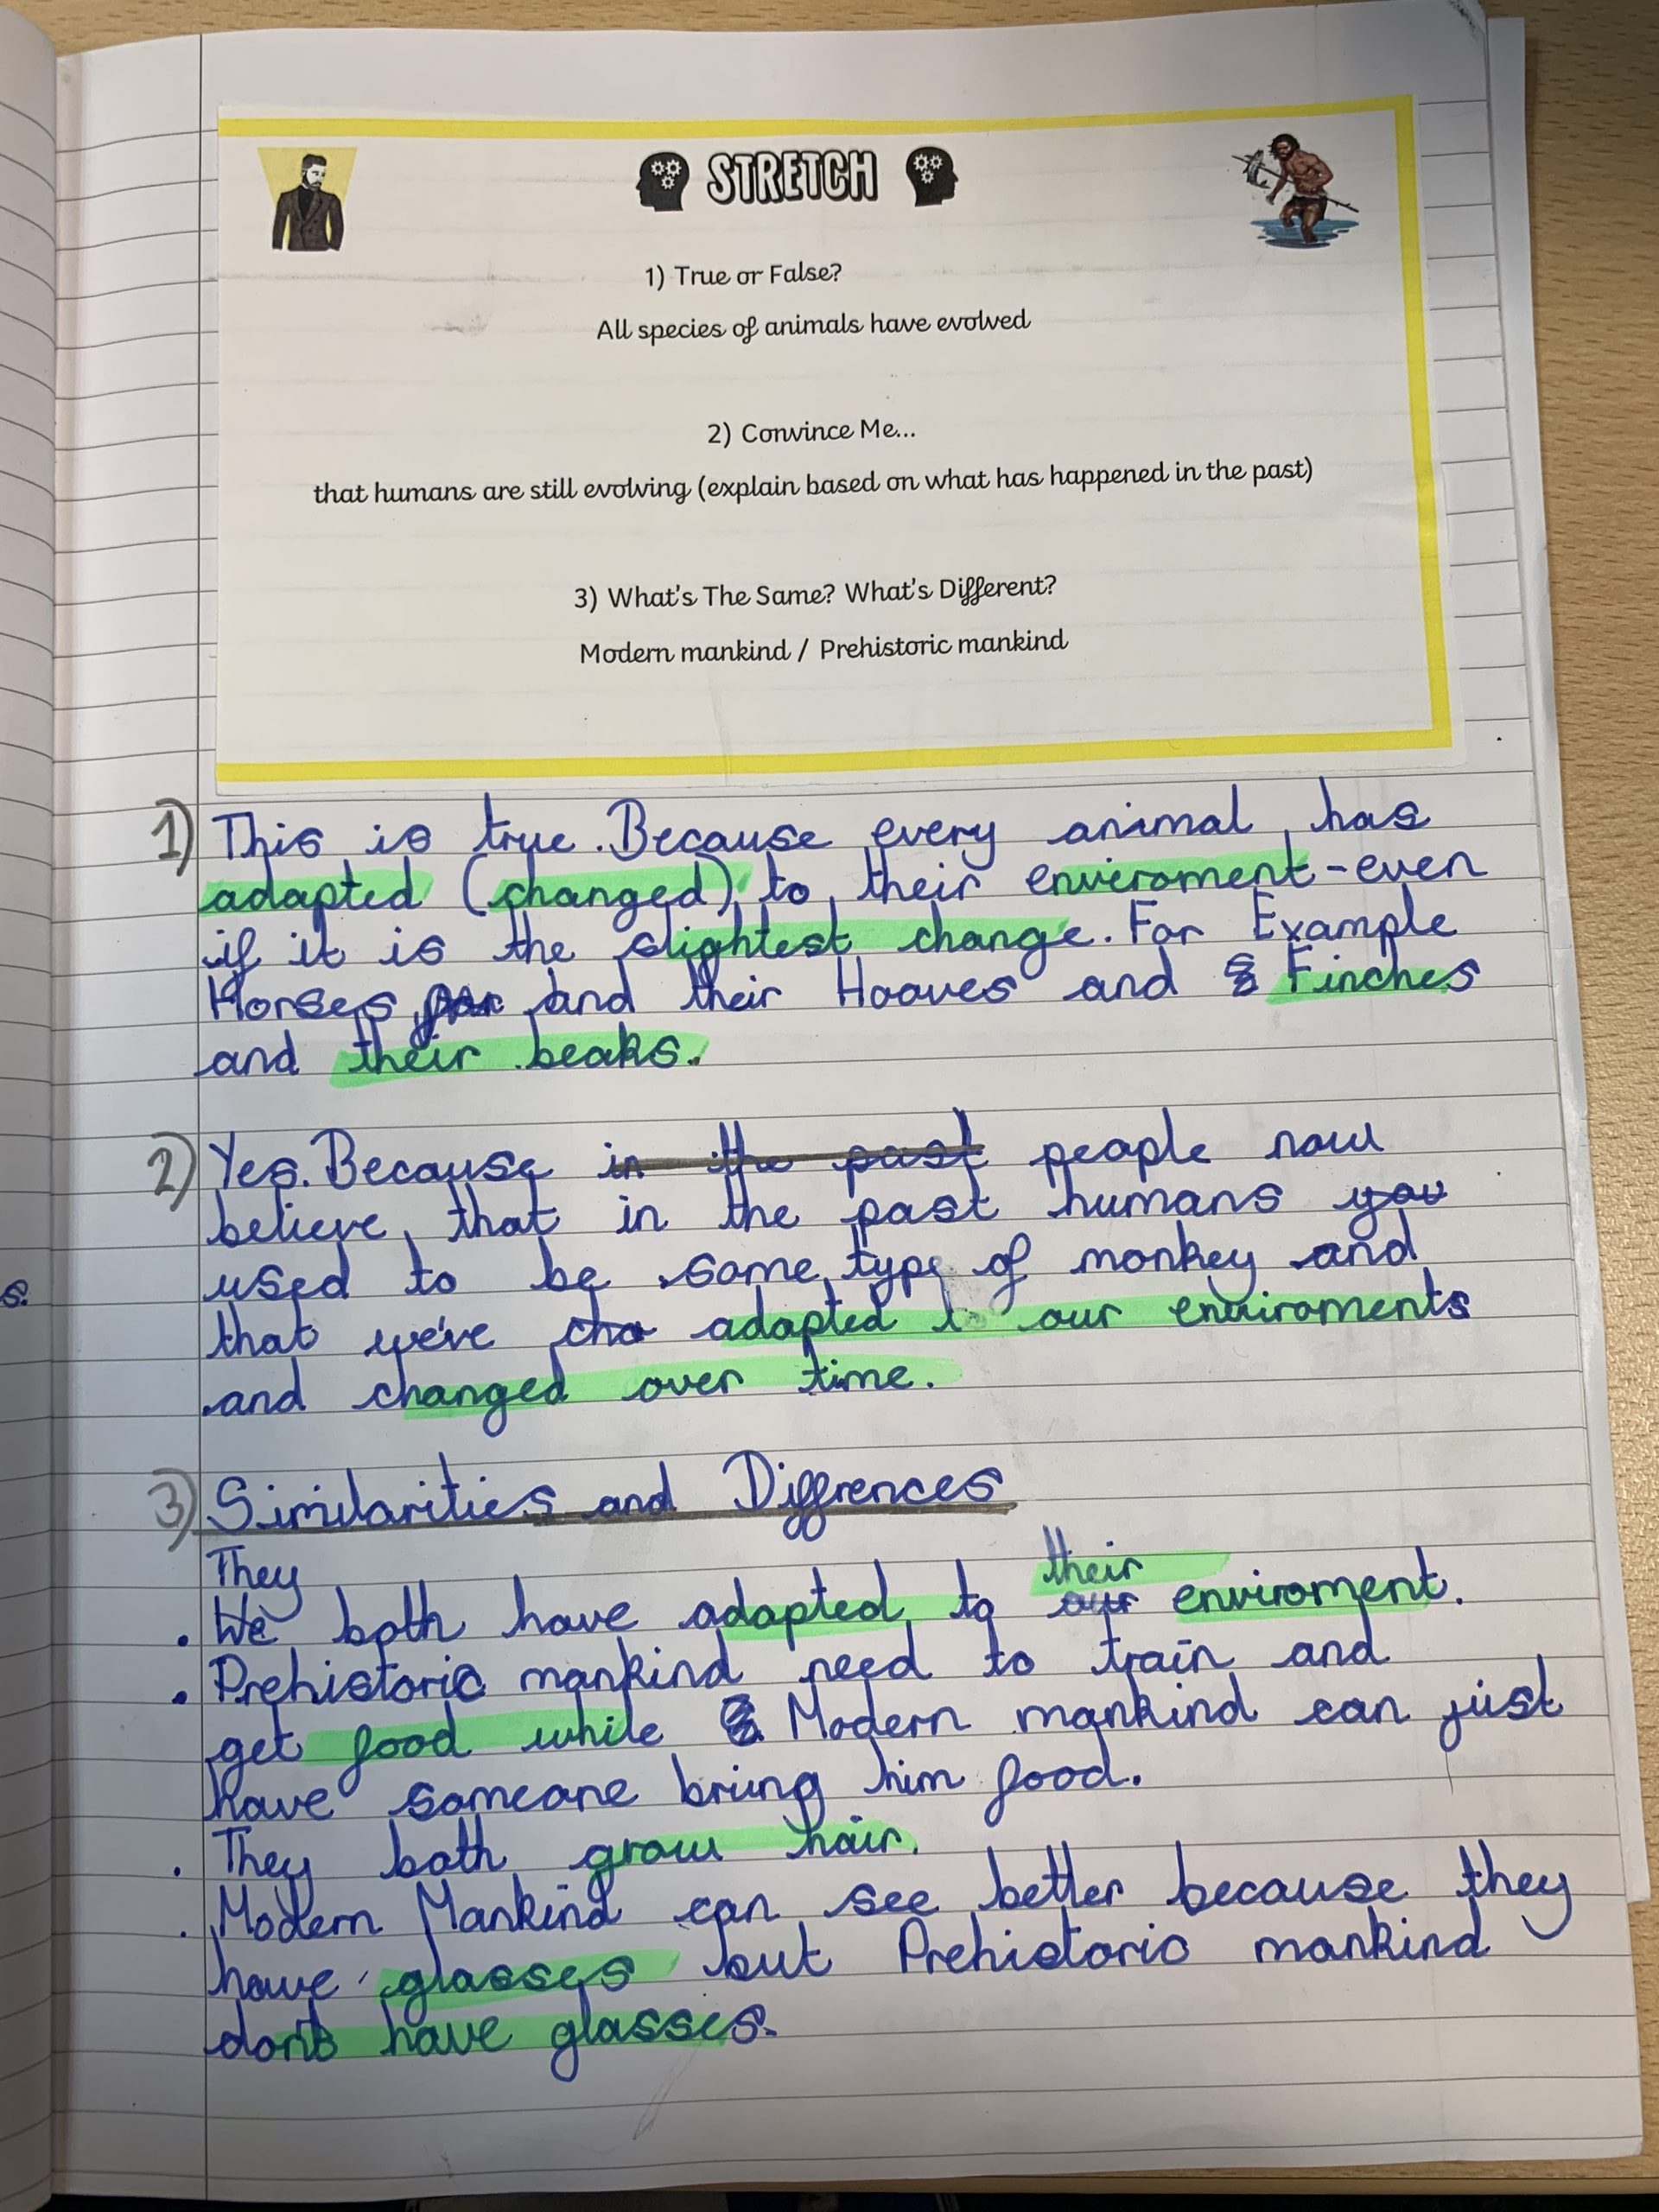 STRETCH
1) True or False?
All species of animals have evolved
2) Convince Me...
that humans are still evolving (explain based on what has happened in the past)
3) What's The Same? What's Different?
Modern mankind / Prehistoric mankind
1) This is true. Because every animal has
adapted (changed) to their enviroment - even
if it is the slightest change. For Example
Horses and their Hooves and Finches
and their beaks.
2) Yes. Because in the past people now
believe that in the past humans you
used to be some type of monkey and
that we've cha adapted to our enviroments
and changed over time.
3) Similarities and Diffrences
They
their
• We both have adapted to our enviroment.
• Prehistoric mankind need to train and
get food while Modern mankind can just
have someone bring him food.
• They both grow hair.
• Modern Mankind can see better because they
have glasses but Prehistoric mankind
don't have glasses.
s.